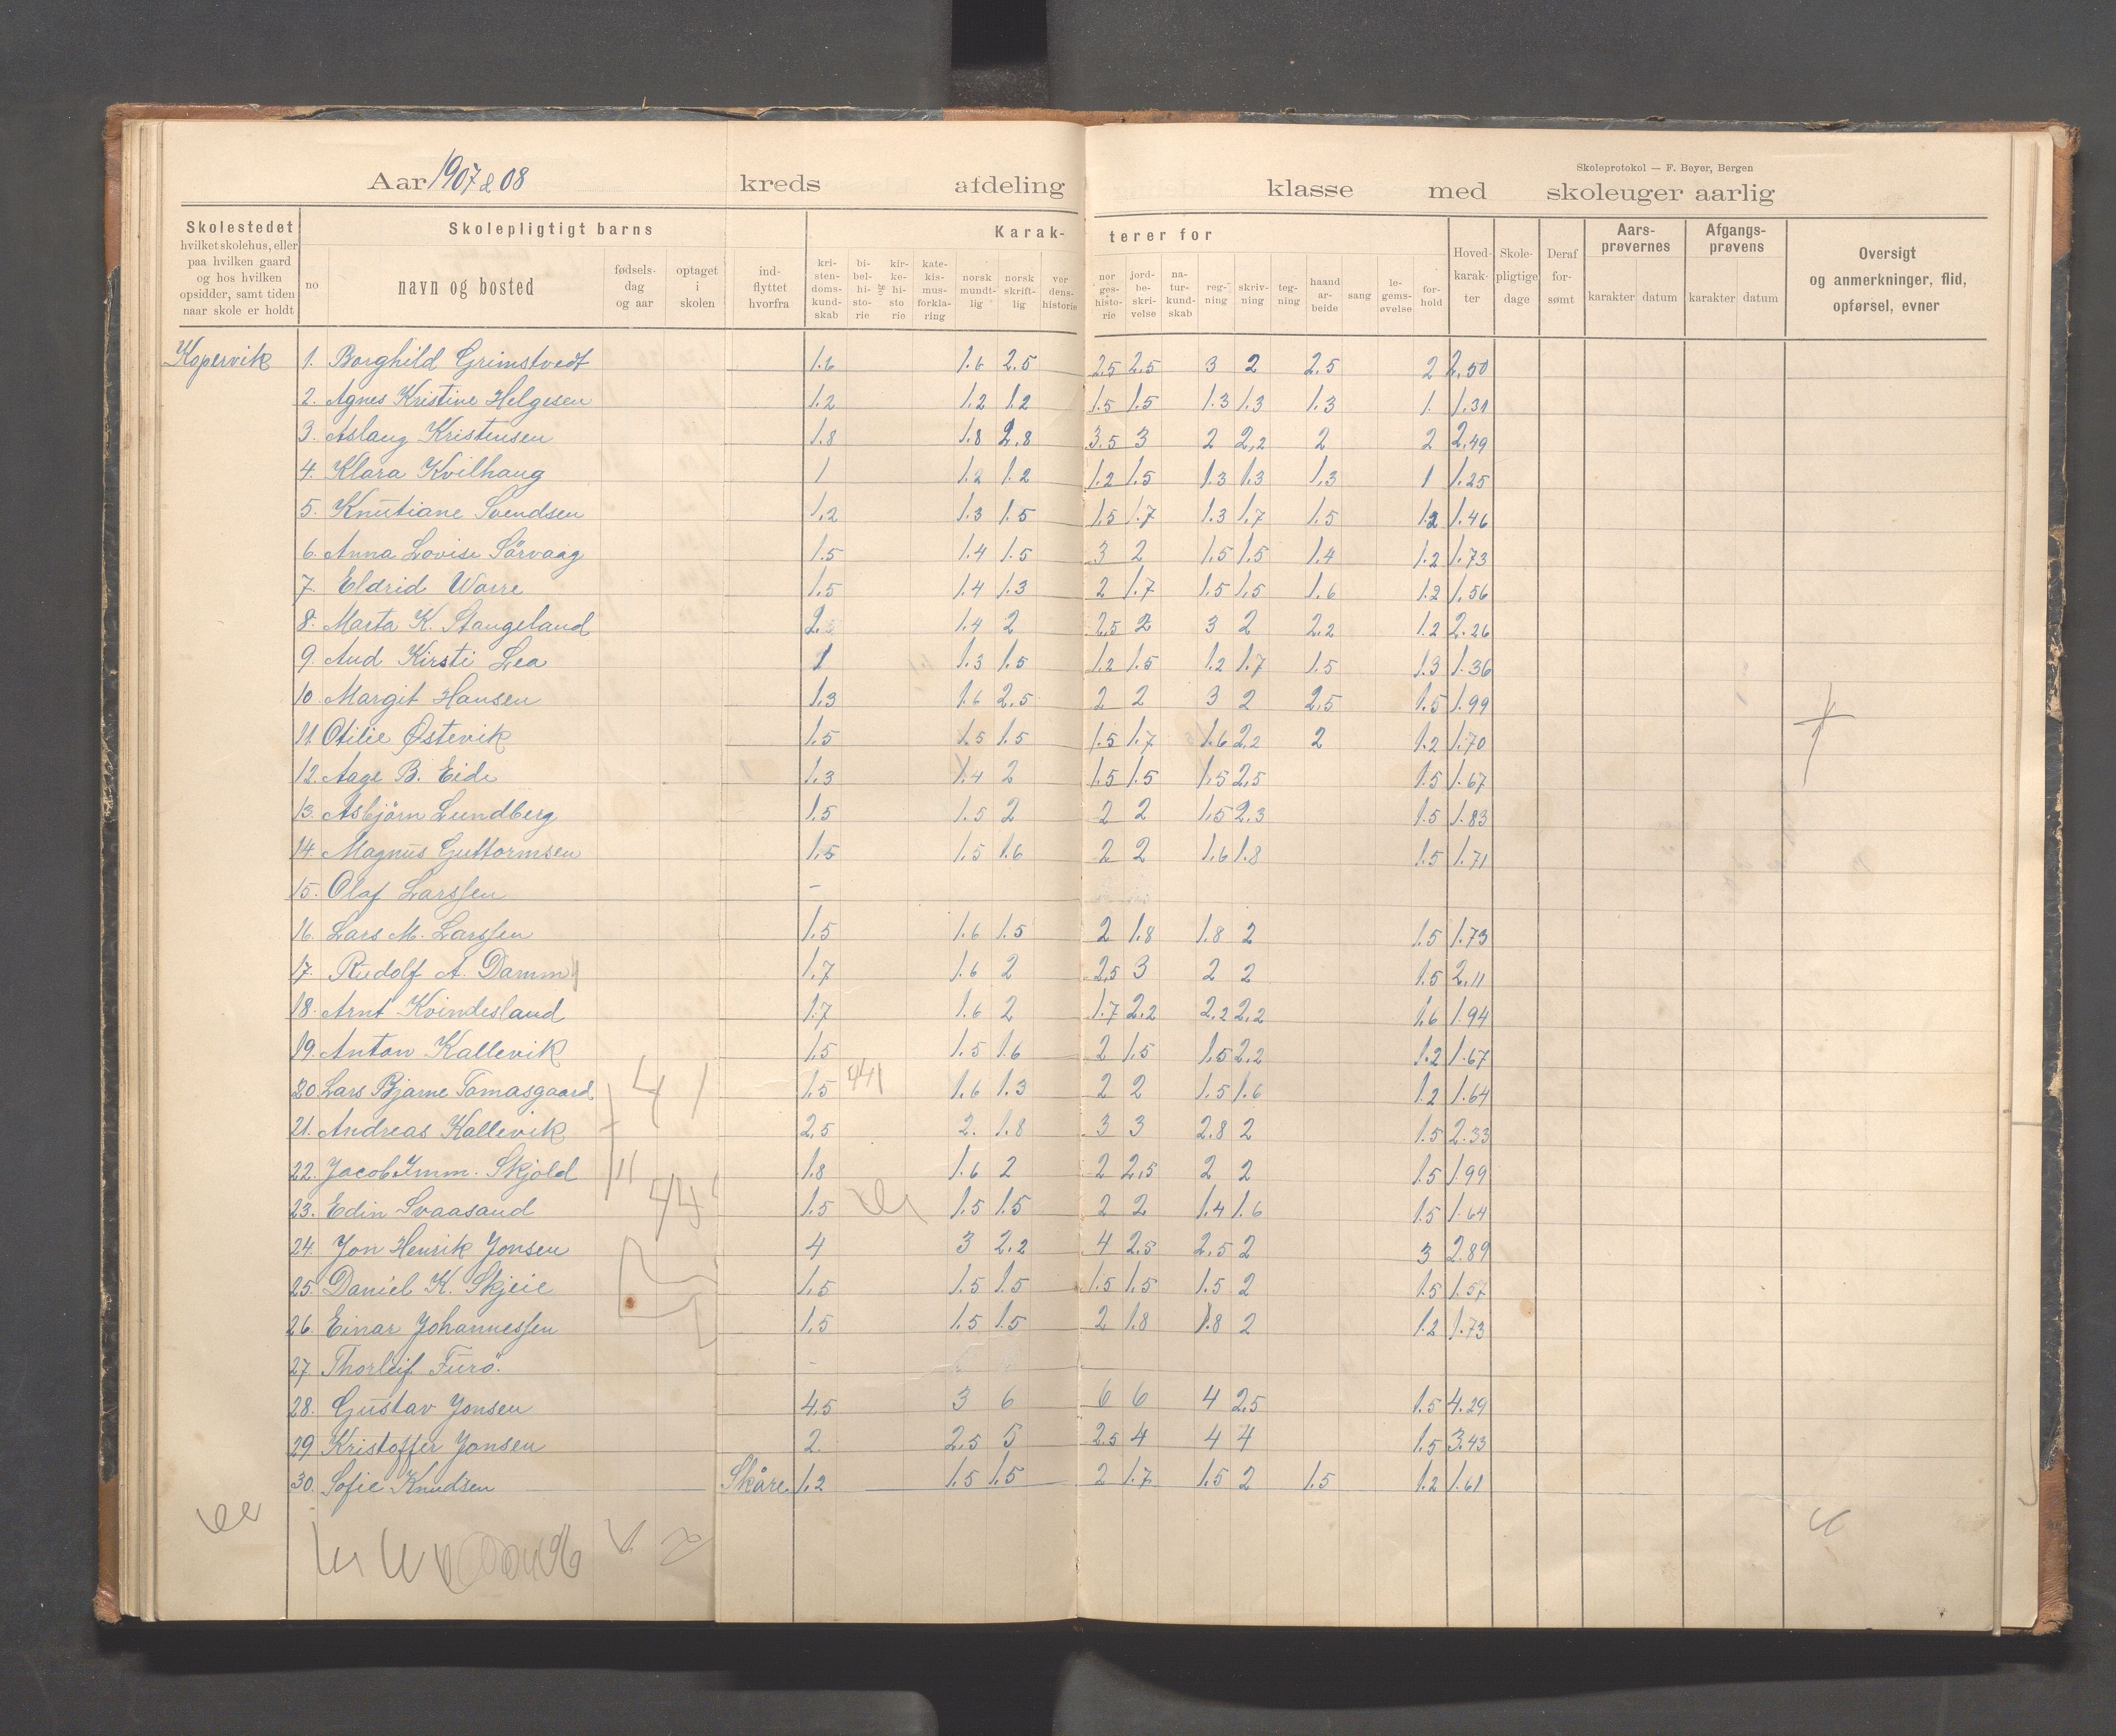 Skoleprotokol — F. Beyer, Bergen
Aar 1907 & 08 kreds afdeling klasse med skoleuger aarlig
Skolestedet hvilket skolehus, eller paa hvilken gaard og hos hvilken opsidder, samt tiden naar skole er holdt
Skolepligtigt barns
no navn og bosted fødsels-dag og aar optaget i skolen ind-flyttet hvorfra
Karak-terer for
kri-sten-doms-kund-skab bi-bel-hi-sto-rie kir-ke-hi-sto rie kate-kis-mus-forkla-ring norsk mundt-lig norsk skrift-lig ver dens-historie nor ges-histo-rie jord-be-skri-velse na-tur-kund-skab reg-ning skriv-ning teg-ning haand ar-beide sang le-gems-øvelse for-hold
Hoved-karak-ter Skole-pligtige dage Deraf for-sømt
Aars-prøvernes karakter datum Afgangs-prøvens karakter datum
Oversigt og anmerkninger, flid, opførsel, evner
Kopervik 1. Borghild Grimstvedt 1.6 1.6 2.5 2.5 2.5 3 2 2.5 2 2,50
2. Agnes Kristine Helgesen 1.2 1.2 1.2 1.5 1.5 1.3 1.3 1.3 1. 1.31
3. Aslaug Kristensen 1.8 1.8 2.8 3.5 3 2 2,2 2 2 2,49
4. Klara Kvilhaug 1 1.2 1.2 1.2 1.5 1.3 1.3 1,3 1 1.25
5. Knutiane Svendsen 1,2 1.3 1.5 1.5 1.7 1.3 1.7 1.5 1.2 1.46
6. Anna Lovise Sörvaag 1.5 1.4 1.5 3 2 1.5 1.5 1.4 1.2 1.73
7. Eldrid Warre 1.5 1.4 1.3 2 1.7 1.5 1.5 1.6 1.2 1.56
8. Marta K. Stangeland 2. 1.4 2 2.5 2 3 2 2,2 1.2 2.26
9. Aud Kirsti Lea 1 1.3 1.5 1.2 1.5 1.2 1.7 1.5 1.3 1.36
10. Margit Hansen 1.3 1.6 2.5 2 2 3 2 2,5 1.5 1.99
11. Otilie Østevik 1.5 1.5 1.5 1.5 1.7 1.6 2.2 2 1.2 1.70
12. Aage B. Eide 1.3 1.4 2 1.5 1.5 1.5 2.5 1.5 1.67
13. Asbjörn Lundberg 1.5 1.5 2 2 2 1.5 2.3 1.5 1.83
14. Magnus Guttormsen 1.5 1.5 1.6 2 2 1.6 1.8 1.5 1.71
15. Olaf Larssen –
16. Lars M. Larssen 1.5 1.6 1.5 2 1.8 1.8 2 1.5 1.73
17. Rudolf A. Damm 1.7 1.6 2 2.5 3 2 2 1.5 2.11
18. Arnt Kvindesland 1.7 1.6 2 1.7 2.2 2,2 2,2 1.6 1.94
19. Anton Kallevik 1.5 1.5 1.6 2 1.5 1.5 2,2 1.2 1.67
20. Lars Bjarne Tomasgaard 41 1.5 441 1.6 1.3 2 2 1.5 1.6 1.2 1.64
21. Andreas Kallevik 2.5 2. 1.8 3 3 2.8 2 1.5 2.33
22. Jacob Imm. Skjold 1.8 1.6 2 2 2,5 2 2 1.5 1.99
23. Edin Svaasand 1.5 1.5 1.5 2 2 1.4 1.6 1.5 1.64
24. Jon Henrik Jonsen 4 3 2.2 4 2.5 2,5 2 3 2.89
25. Daniel K. Skjeie 1.5 1.5 1.5 1.5 1.5 1.5 2 1.5 1.57
26. Einar Johannessen 1.5 1.5 1.5 2 1.8 1.8 2 1.2 1.73
27. Thorleif Furö. –
28. Gustav Jonsen 4.5 3 6 6 6 4 2.5 1.5 4.29
29 Kristoffer Jonsen 2. 2.5 5 2.5 4 4 4 1.5 3.43
30. Sofie Knudsen Skåre 1.2 1.5 1.5 2 1.7 1.5 2 1.5 1.2 1.61